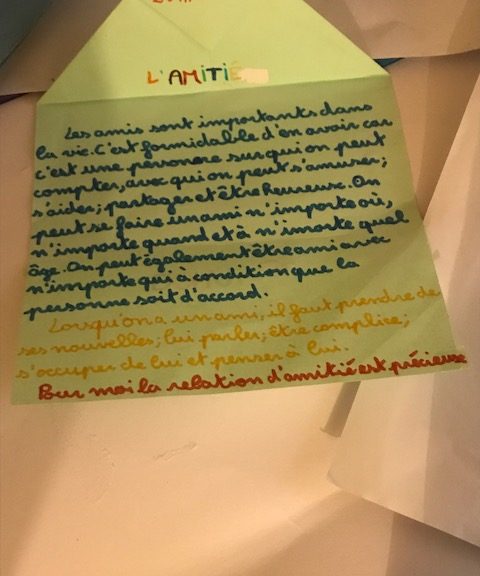 L'AMITIÉ
Les amis sont importants dans
la vie. C'est formidable d'en avoir car
c'est une personne sur qui on peut
compter, avec qui on peut s'amuser;
s'aider; partager et être heureuse. On
peut se faire un ami n'importe où,
n'importe quand et à n'imorte quel
âge. On peut également être ami avec
n'importe qui à condition que la
personne soit d'accord.
Lorsqu'on a un ami, il faut prendre de
ses nouvelles; lui parler; être complice;
s'occuper de lui et penser à lui.
Pour moi la relation d'amitié est précieuse